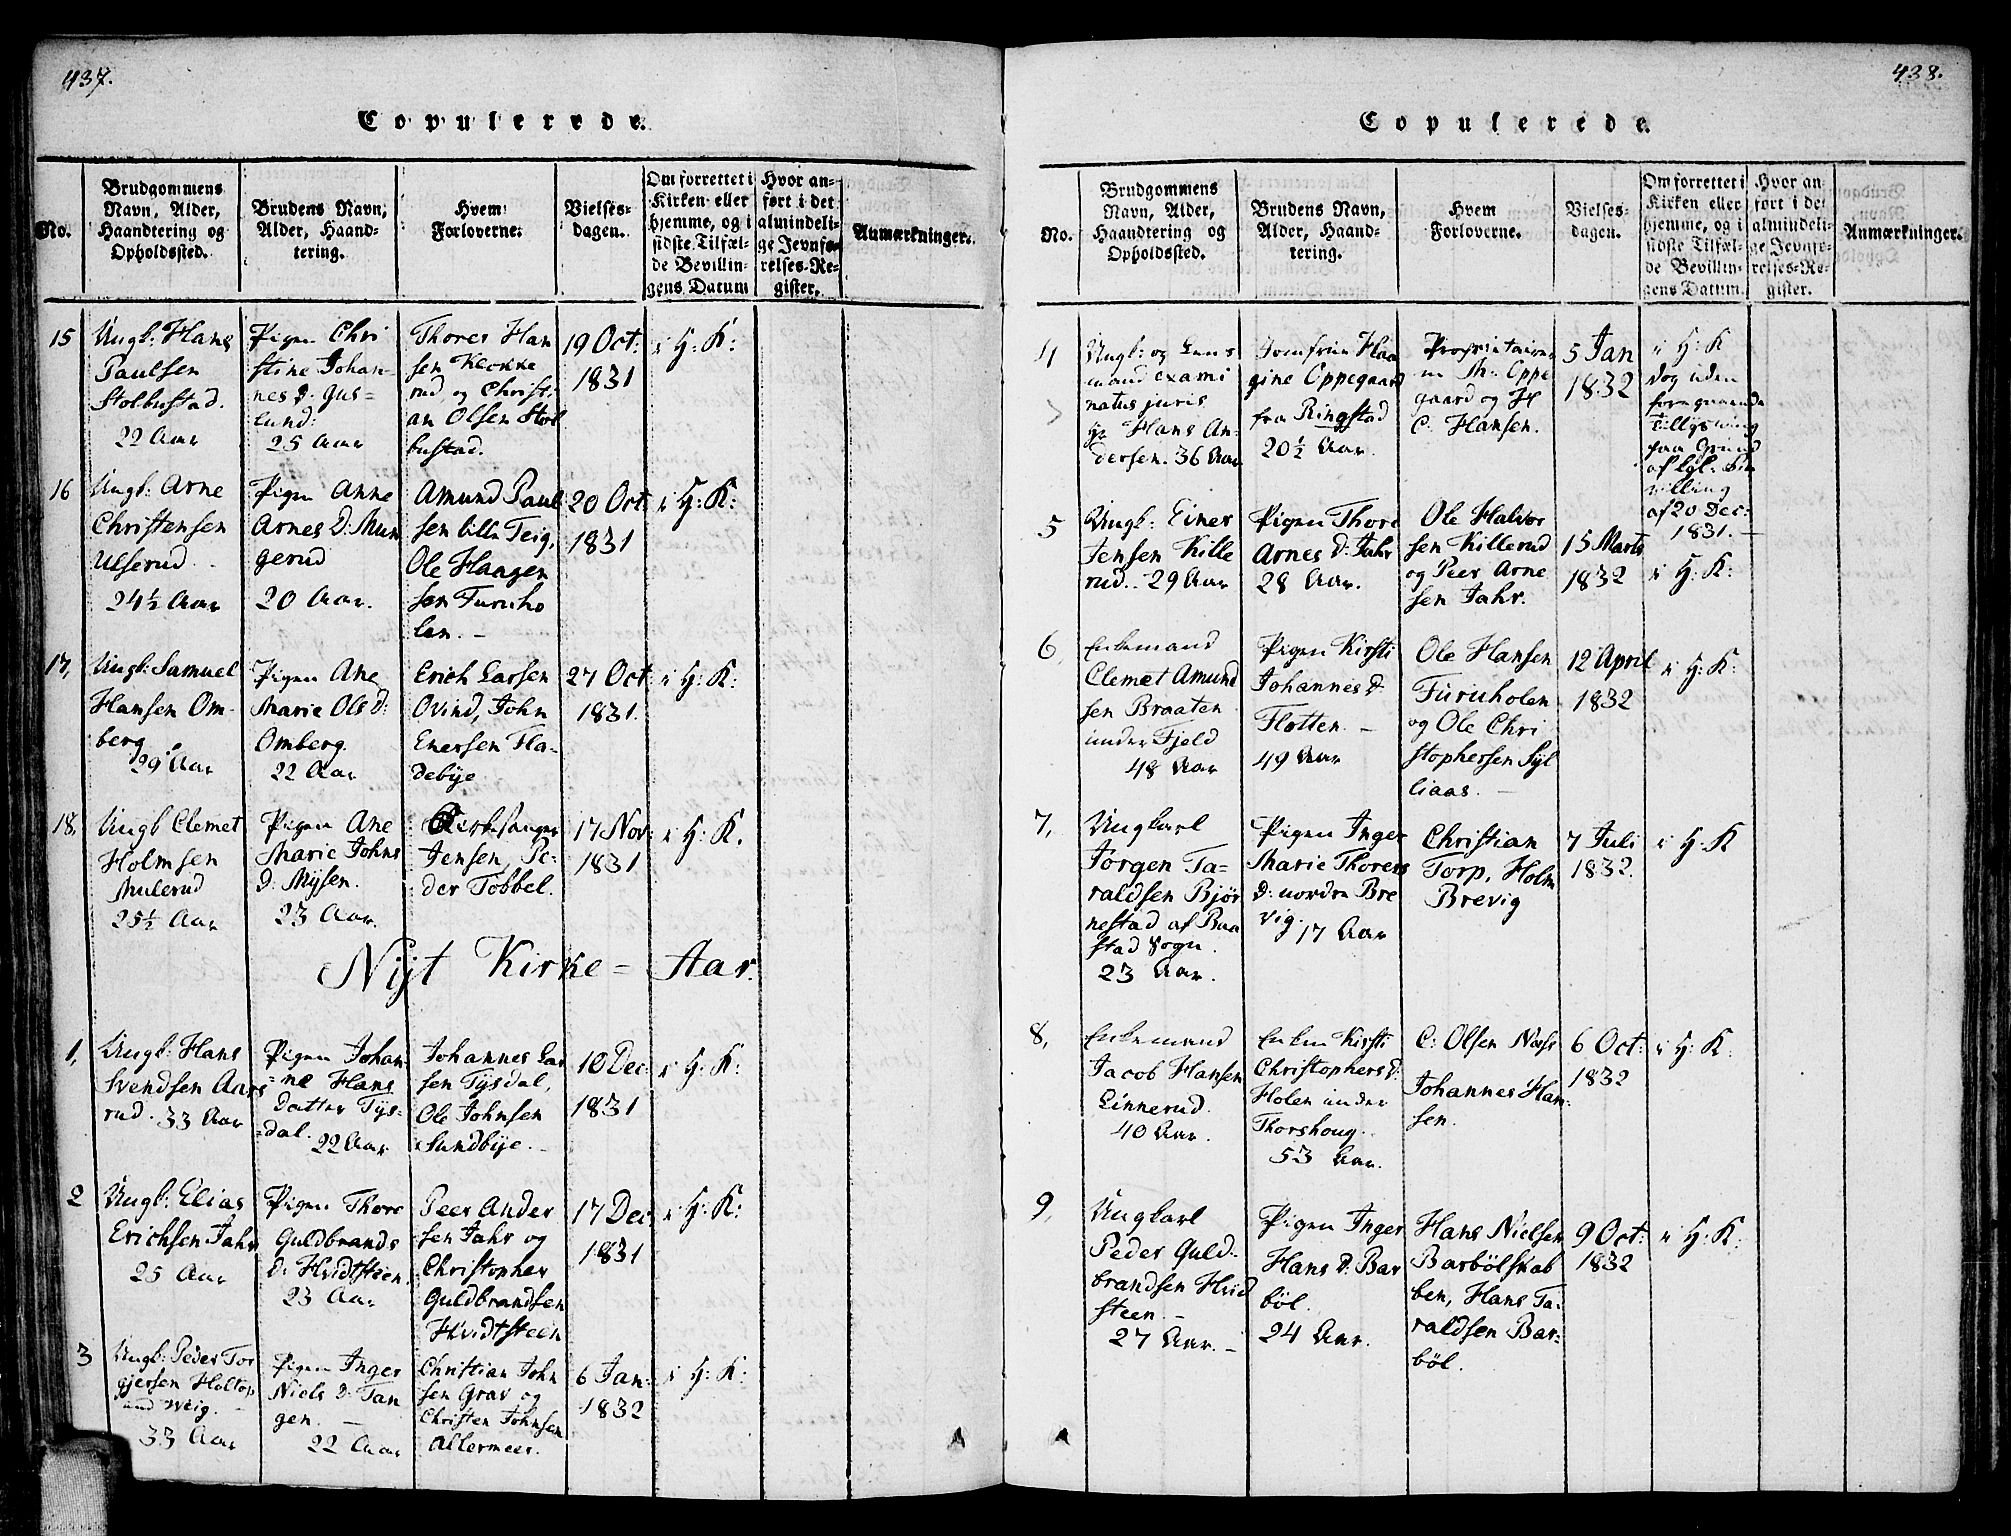 437.
Copulerede.
No.
Brudgommens
Navn, Alder,
Haandtering og
Opholdssted.
Brudens Navn,
Alder, Haand-
tering.
Hvem
Forloverne.
Vielses-
dagen.
Om forrettet i
Kirken eller
hjemme, og i
sidste Tilfæl-
de Bevillin-
gens Datum
Hvor an-
ført i det
almindeli-
ge Jevnfø-
relses-Re-
gister.
Anmærkninger.
15
Ungk: Hans
Paulsen
Stolbustad.
22 Aar
Pigen Chri
stine Johan-
nes D: Gus-
lund:
25 Aar
Thores Han
sen Klokke
rud og Christi
an Olsen Stol
bustad.
19 Oct:
1831
i H: K:
16
Ungk: Arne
Christensen
Ulserud.
24½ Aar
Pigen Anne
Arnes D: Mun
gerud
20 Aar.
Amund Paul
sen lille Teig,
Ole Haagen
sen Furuho
len. -
20 Oct
1831
i H: K:
17,
Ungk: Samuel
Hansen Om-
berg
29 Aar
Pigen Ane
Marie Ols D:
Omberg.
22 Aar
Erich Larsen
Ovind, John
Enersen Fla-
debye
27 Oct
1831.
i H: K:
18,
Ungk Clemet
Holmsen
Mulerud
25½ Aar
Pigen Ane
Marie Johns
D: Mysen.
23 Aar.
Kirkesanger
Jensen, Pe-
der Tobbel.
17 Nov:
1831
i H: K.
Nyt Kirke-Aar.
1,
Ungk: Hans
Svendsen Aars
rud. 33 Aar
Pigen Johan
ne Hans
Datter Tys-
dal.
22 Aar
Johannes Lar
sen Tysdal,
Ole Johnsen
Sundbye.
10 Dec:
1831
i H: K:
2
Ungk: Elias
Erichsen Jahr
25 Aar
Pigen Thore
Guldbrands
D: Hvidtsteen.
23 Aar
Peer Ander
sen Jahr og
Christopher
Guldbrandsen
Hvidtsteen
17 Dec
1831
i H: K:
3
Ungk: Peder Tor
gjersen Holtop
Pigen Inger
Niels D: Tan
gen. -
22 Aar
33 Aar
Christian John
sen Grav og
Christen Johnsen
Allermeer.
6 Jan:
1832
i H: K:
438.
Copulerede.
No.
Brudgommens
Navn, Alder,
Haandtering og
Opholdssted.
Brudens Navn,
Alder, Haand-
tering.
Hvem
Forloverne.
Vielses-
dagen.
Om forrettet i
Kirken eller
hjemme, og i
sidste Tilfæl-
de Bevillin-
gens Datum.
Hvor an-
ført i det
almindeli-
ge Jevnfø-
relses-Re-
gister.
Anmærkninger.
4
Ungk: og Lens
mand exami
natus juris
Hr Hans An-
dersen. 36 Aar
Jomfrue Haa
gine Oppegaard
fra Ringstad
20½ Aar.
Proprietairer
ne Th: Oppe
gaard og H
C. Hansen.
5 Jan
1832
i H: K
dog uden
foregaaende
Tillysning
paa Grund
af kgl: Be
villing
af 20 Dec:
1831. -
5
Ungk: Einer
Jensen Kille
rud. 29 Aar
Pigen Thore
Arnes D: Jahr
28 Aar.
Ole Halvor
sen Killerud
og Peer Arne
sen Jahr.
15 Marts
1832
i H: K:
6,
Enkemand
Clemet Amund
sen Braaten
under Fjeld
48 Aar
Pigen Kirsti
Johannes D:
Fløtten. -
49 Aar
Ole Hansen
Furuholen
og Ole Chri
stophersen Syl
liaas. -
12 April
1832
i H: K:
7,
Ungkarl
Jørgen Ta-
raldsen Bjør
nestad af Baa
stad Sogn.
23 Aar.
Pigen Inger
Marie Thores
D: nordre Bre
vig.
17 Aar
Christian
Torp, Holm
Brevig
7 Juli
1832.
i H: K
8,
Enkemand
Jacob Hansen
Linnerud.
40 Aar.
Enken Kirsti
Christophers D:
Holen under
Thorshoug.
53 Aar.
C: Olsen Næss
Johannes Han-
sen.
6 Oct:
1832
i H: K:
9,
Ungkarl
Peder Guld-
brandsen Hvid
steen. -
27 Aar. -
Pigen Inger
Hans D: Bar
böl.
24 Aar.
Hans Nielsen
Barbölskab
ben, Hans Ta-
raldsen Bar-
böl.
9 Oct:
1832
i H: K: